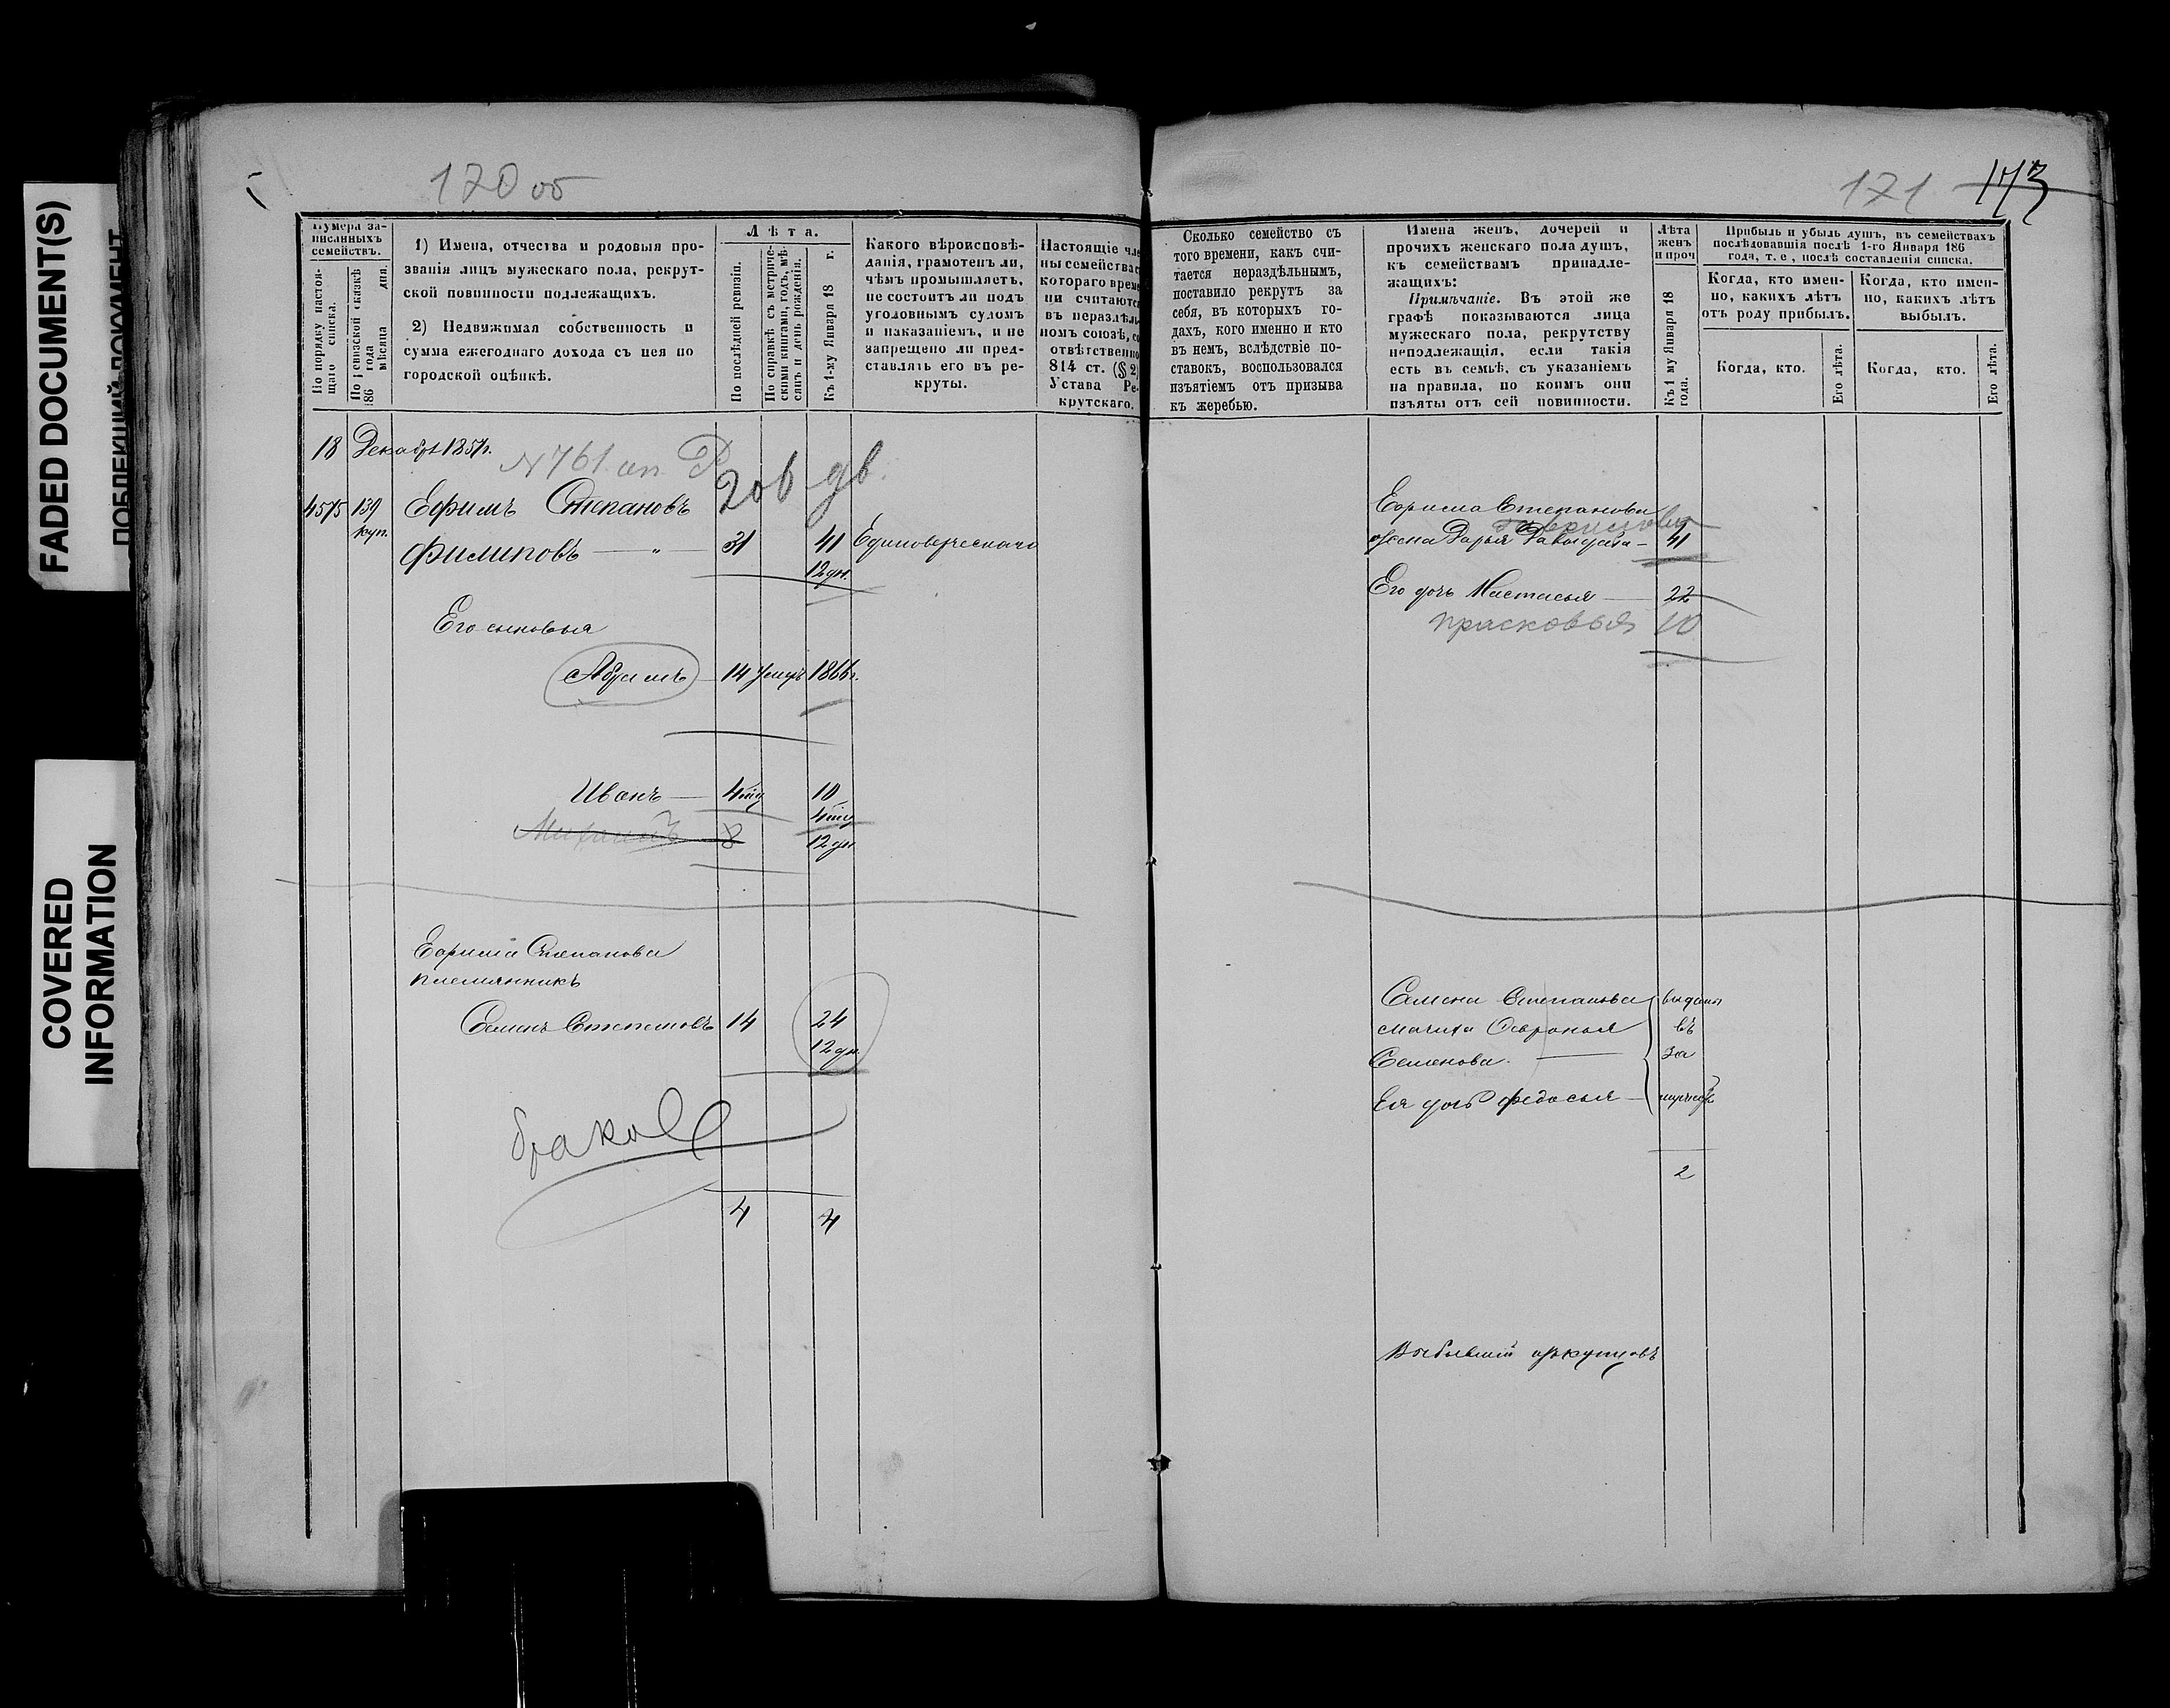 FADED DOCUMENT(S)
COVERED
INFORMATION
170 об
171 173
Нумера за-
писанныхъ
семействъ.
По порядку настоя-
щаго списка.
По ревизской сказкѣ
186 года мѣсяца дня.
1) Имена, отчества и родовыя про-
званія лицъ мужескаго пола, рекрут-
ской повинности подлежащихъ.
2) Недвижимая собственность и
сумма ежегоднаго дохода съ нея по
городской оцѣнкѣ.
Лѣта.
По послѣдней ревизіи.
По справкѣ съ метриче-
скими книгами, годъ, мѣ-
сяцъ и день рожденія.
Къ 1-му Января 18 г.
Какого вѣроисповѣ-
данія, грамотенъ ли,
чѣмъ промышляетъ,
не состоитъ ли подъ
уголовнымъ судомъ
и наказаніемъ, и не
запрещено ли пред-
ставлять его въ ре-
круты.
Настоящіе чле
ны семейства с
котораго време
ни считаются
въ нераздѣль
номъ союзѣ, со
отвѣтственно
814 ст. (§ 2)
Устава Ре-
крутскаго.
Сколько семейство съ
того времени, какъ счи-
тается нераздѣльнымъ,
поставило рекрутъ за
себя, въ которыхъ го-
дахъ, кого именно и кто
въ немъ, вслѣдствіе по-
ставокъ, воспользовался
изъятіемъ отъ призыва
къ жеребью.
Имена женъ, дочерей и
прочихъ женскаго пола душъ,
къ семействамъ принадле-
жащихъ:
Примѣчаніе. Въ этой же
графѣ показываются лица
мужескаго пола, рекрутству
неподлежащія, если такія
есть въ семьѣ, съ указаніемъ
на правила, по коимъ они
изъяты отъ сей повинности.
Лѣта
женъ
и проч
Къ 1 му Января 18
года.
Прибыль и убыль душъ, въ семействахъ
послѣдовавшія послѣ 1-го Января 186
года, т. е, послѣ составленія списка.
Когда, кто имен-
но, какихъ лѣтъ
отъ роду прибылъ.
Когда, кто имен-
но, какихъ лѣтъ
выбылъ.
Когда, кто.
Его лѣта.
Когда, кто.
Его лѣта.
18 Декабр 1857г.
N 761
4575 139 Ефимъ Степановъ
куп.
Филиповъ — „ — 31 41 Единоверческаго
12 дн.
Его сыновья
Абрамъ 14 умеръ 1866г.
Иванъ — 4 мѣс 10
4 мѣс
8 12 дн
Ефима Степанова
племянникъ
Семенъ Степановъ 14 24
12 дн.
4 4
Ефима Степанова
жена Дарья Давыдова — 41
Его дочь Настасья — 22
Прасковья 10
Семена Степанова выданы
мачиха Феврония въ
Семенова — за
Ея дочь Федосья —
2
Выбывшій изъ купцовъ